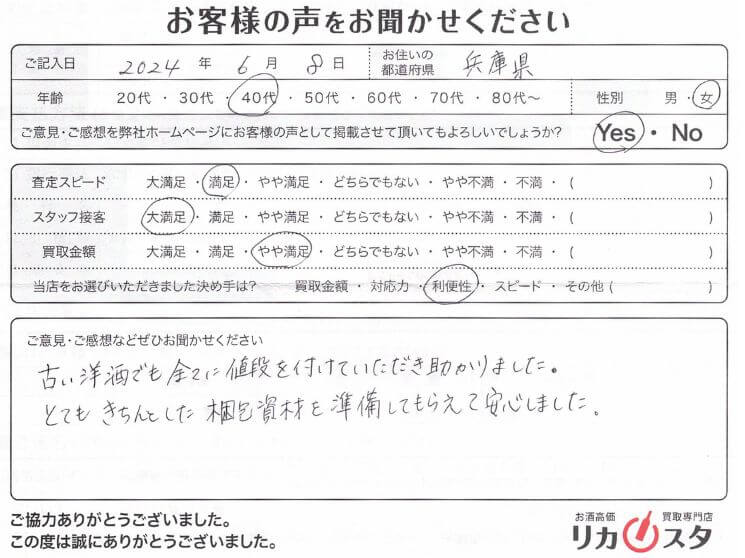 お客様の声をお聞かせください
ご記入日 2024 年 6 月 8 日 お住いの都道府県 兵庫県
年齢 20代・30代・40代・50代・60代・70代・80代～ 性別 男・女
ご意見・ご感想を弊社ホームページにお客様の声として掲載させて頂いてもよろしいでしょうか? Yes・No
査定スピード 大満足・満足・やや満足・どちらでもない・やや不満・不満・( )
スタッフ接客 大満足・満足・やや満足・どちらでもない・やや不満・不満・( )
買取金額 大満足・満足・やや満足・どちらでもない・やや不満・不満・( )
当店をお選びいただきました決め手は? 買取金額・対応力・利便性・スピード・その他( )
ご意見・ご感想などぜひお聞かせください
古い洋酒でも全てに値段を付けていただき助かりました。
とてもきちんとした梱包資材を準備してもらえて安心しました。
ご協力ありがとうございました。
この度は誠にありがとうございました。
お酒高価 買取専門店
リカスタ